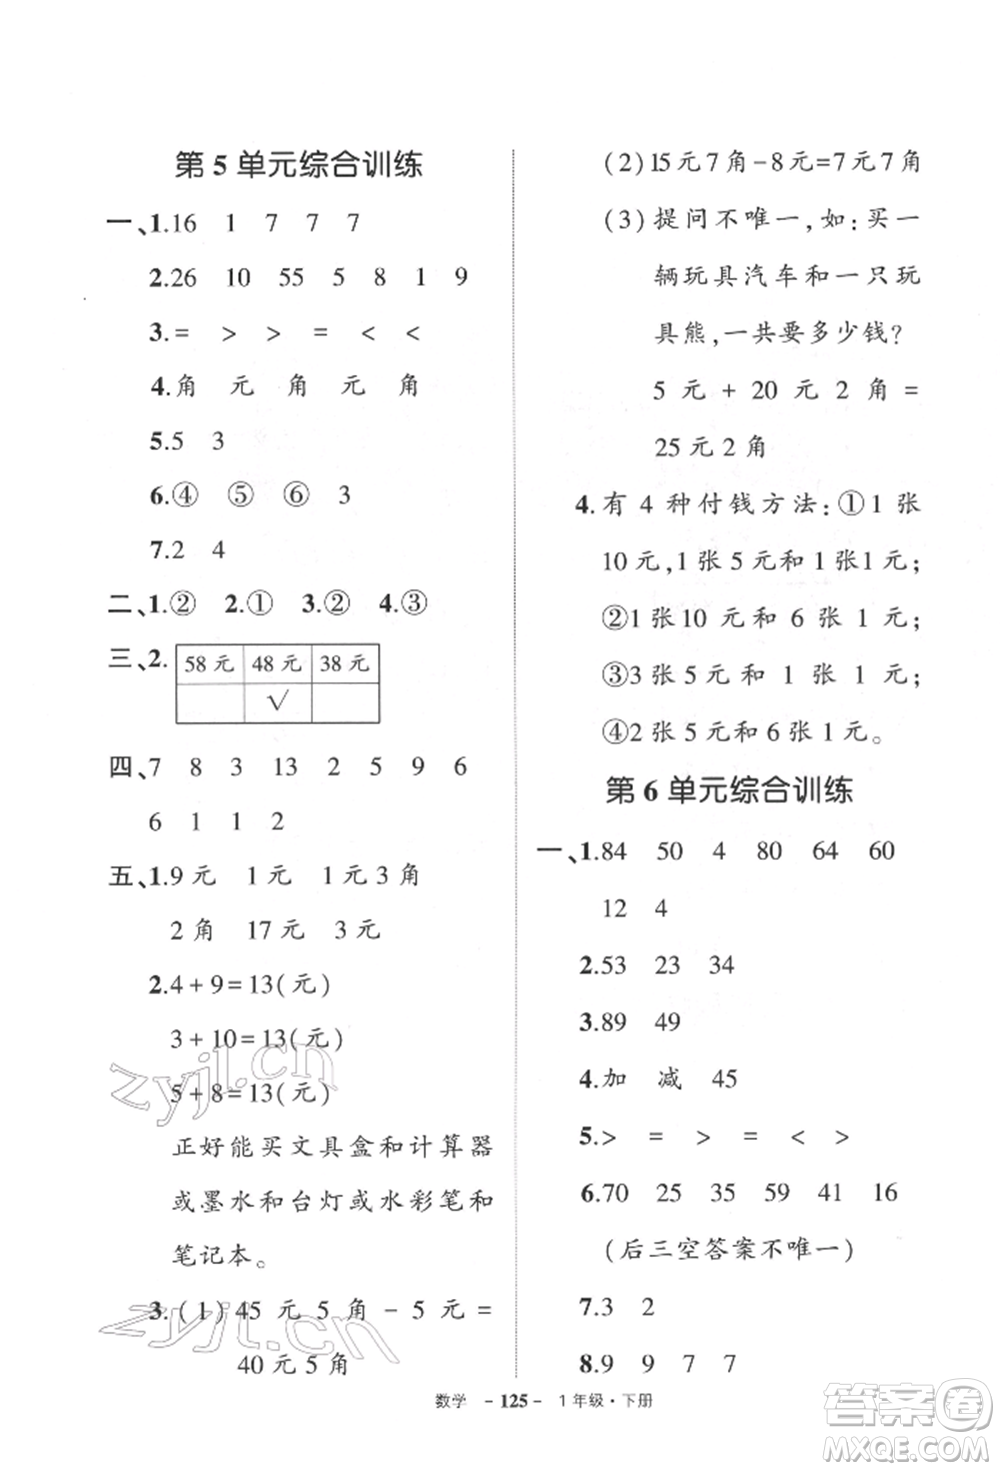 第 5 单元综合训练
一、1.16 1 7 7 7
2.26 10 55 5 8 1 9
3.= > > = < <
4.角 元 角 元 角
5.5 3
6.④ ⑤ ⑥ 3
7.2 4
二、1.② 2.① 3.② 4.③
三、2. 58 元 48 元 38 元
√
四、7 8 3 13 2 5 9 6
6 1 1 2
五、1.9 元 1 元 1 元 3 角
2 角 17 元 3 元
2.4+9=13(元)
3+10=13(元)
5+8=13(元)
正好能买文具盒和计算器
或墨水和台灯或水彩笔和
笔记本。
3.(1)45 元 5 角 - 5 元 =
40 元 5 角
(2)15元7角-8元=7元7角
(3)提问不唯一,如:买一
辆玩具汽车和一只玩
具熊,一共要多少钱?
5 元 + 20 元 2 角 =
25 元 2 角
4.有 4 种付钱方法:①1 张
10 元,1 张 5 元和 1 张1元;
②1 张10 元 和 6 张 1 元;
③3 张 5 元 和 1 张 1 元;
④2 张 5 元和 6 张 1 元。
第 6 单元综合训练
一、1.84 50 4 80 64 60
12 4
2.53 23 34
3.89 49
4.加 减 45
5.> = > = < >
6.70 25 35 59 41 16
(后三空答案不唯一)
7.3 2
8.9 9 7 7
数学 - 125 - 1 年级·下册
zyjl.cn
zyjl.cn
答案圈
MXQE.COM